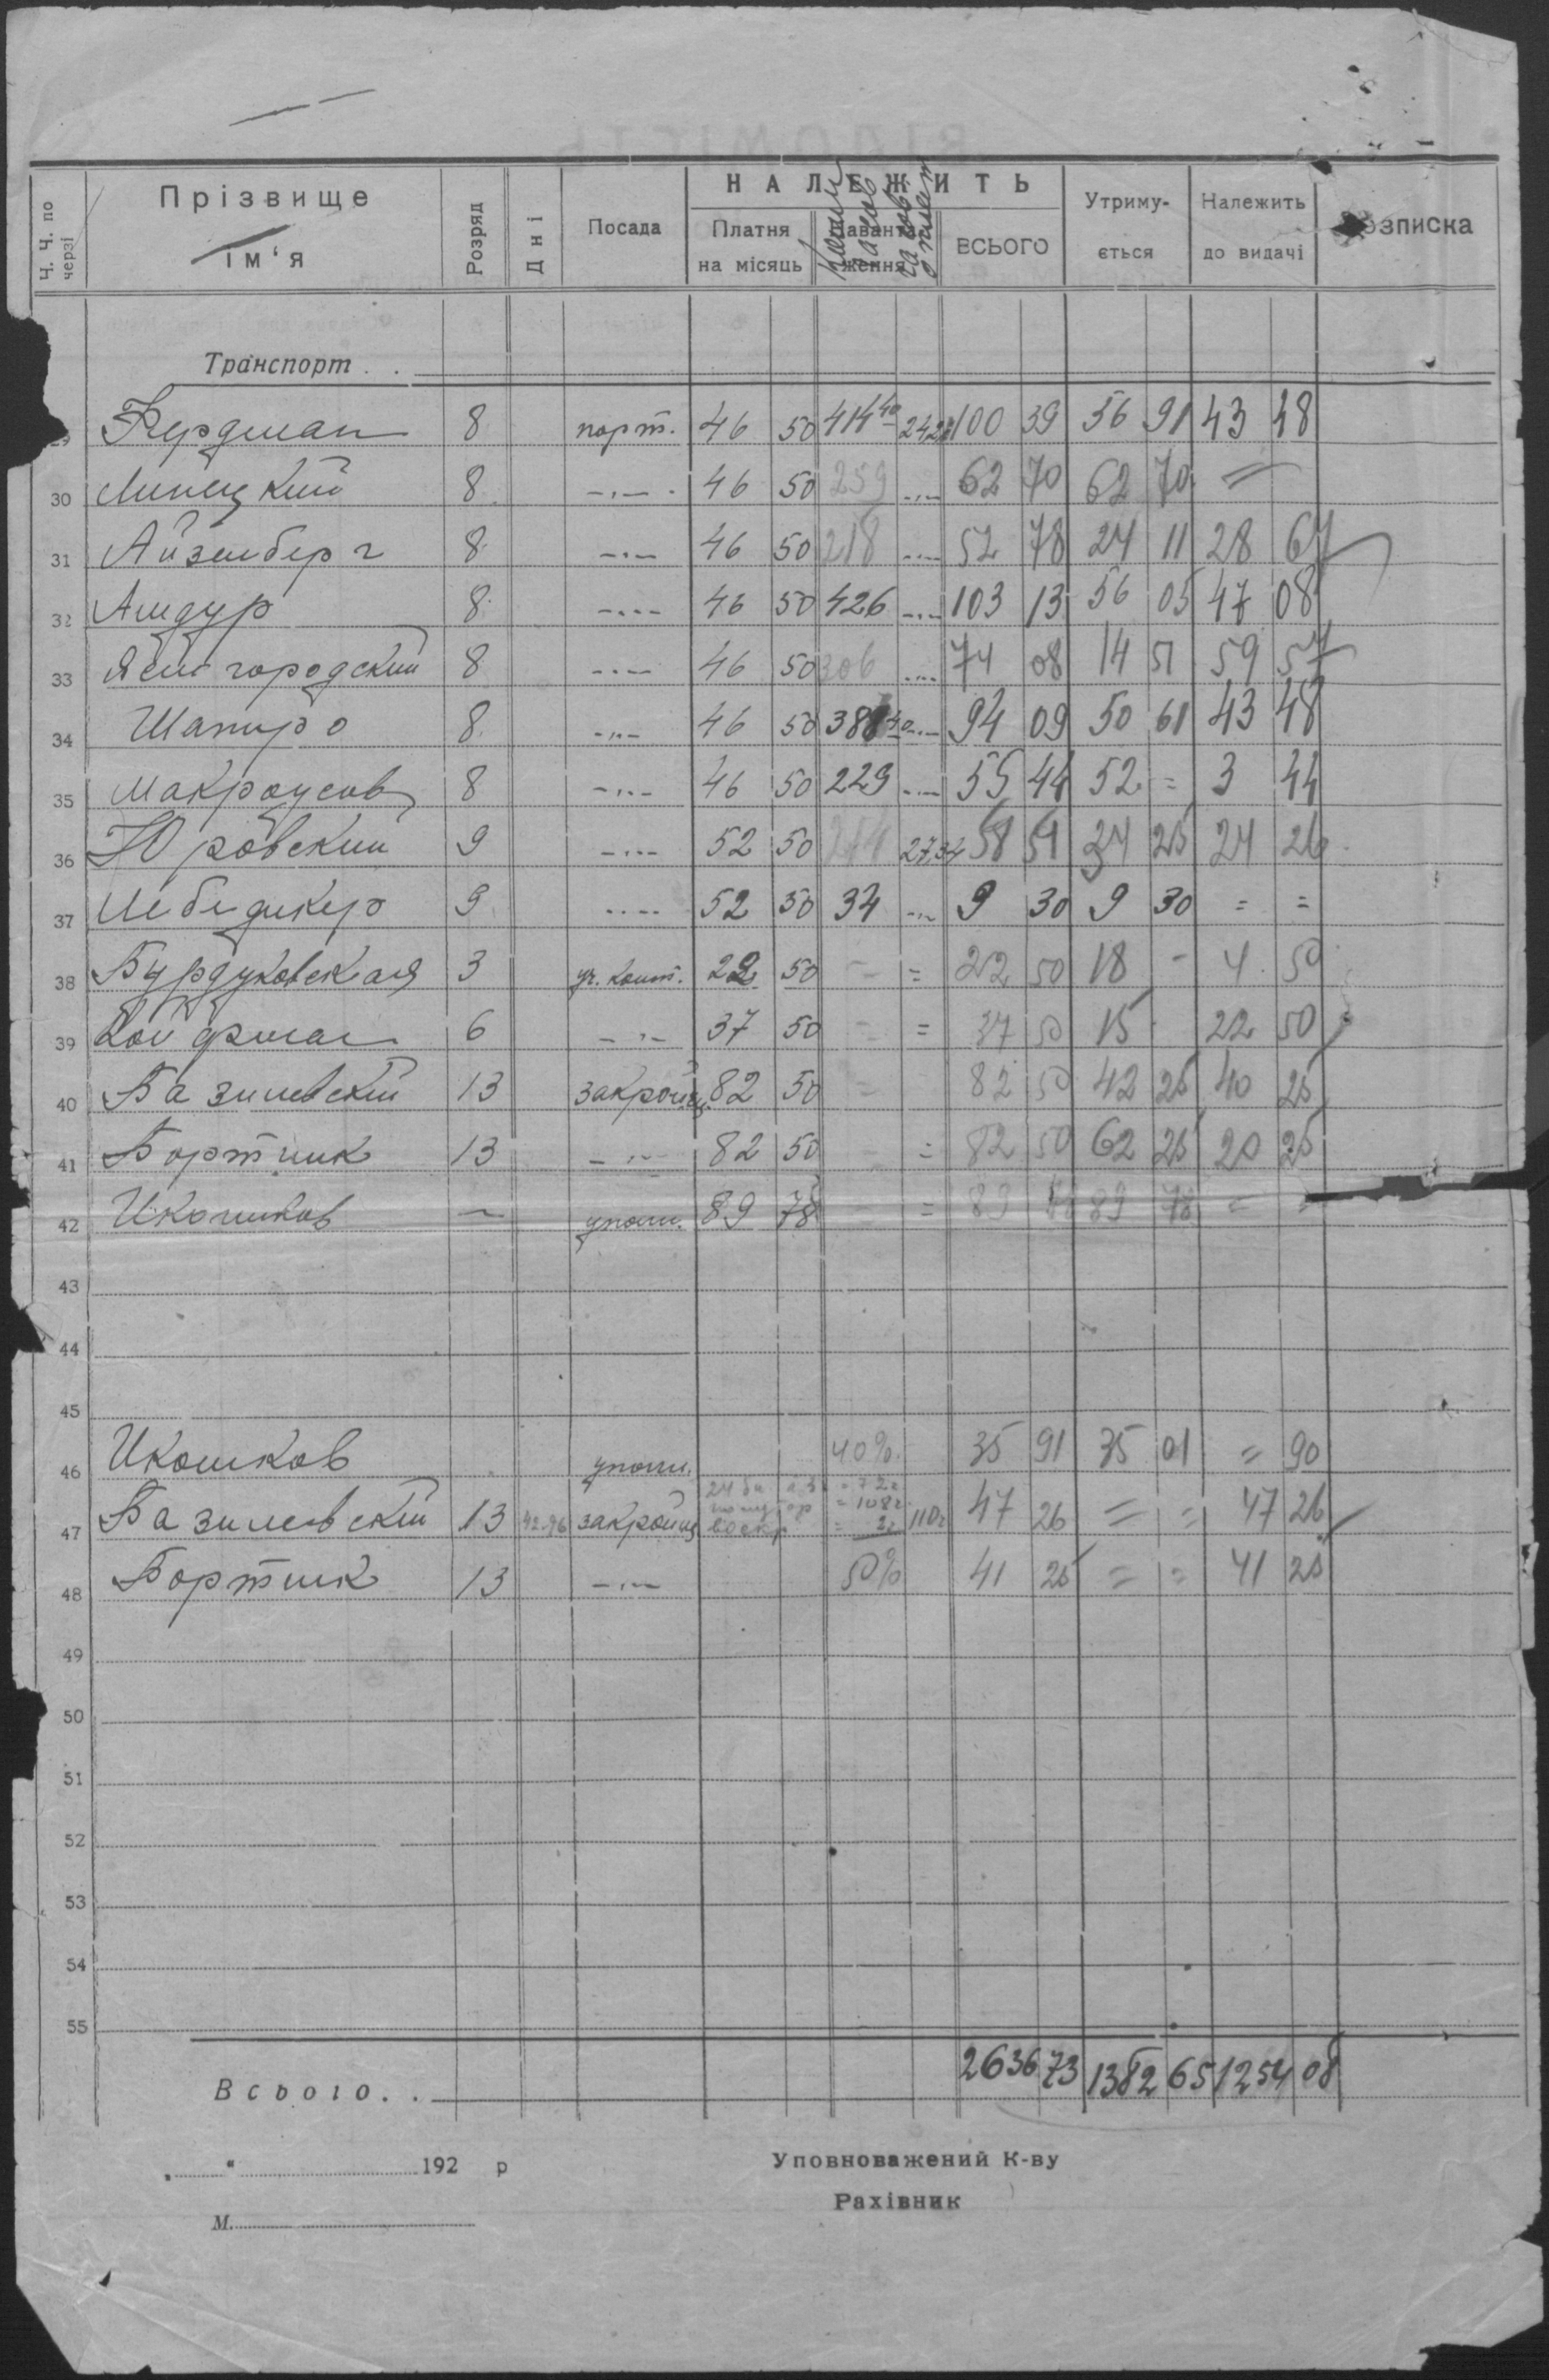 НАЛЕЖИТЬ
Ч. Ч. по черзі Прізвище ім‘я Розряд Дні Посада Платня на місяць ВСЬОГО Утриму-ється Належить до видачі Розписка
Транспорт . .
29 Фердман 8 порт. 46 50 414 40 100 39 56 91 43 48
30 Линецкий 8 -"- 46 50 259 -"- 62 70 62 70 =
31 Айзенберг 8 -"- 46 50 218 -"- 52 78 24 11 28 67
32 Амдур 8 -"- 46 50 426 -"- 103 13 56 05 47 08
33 Ясногородский 8 -"- 46 50 306 -"- 74 08 14 51 59 57
34 Шапиро 8 -"- 46 50 388 40 -"- 94 09 50 61 43 48
35 Макроусов 8 -"- 46 50 229 -"- 55 44 52 = 3 44
36 Юровский 9 -"- 52 50 214 27,34 58 51 34 25 24 26
37 Лебедикер 9 -"- 52 50 34 -"- 9 30 9 30 = =
38 Бурдуковская 3 уч. конт. 22 50 - = 22 50 18 - 4 50
39 Койфман 6 -"- 37 50 - = 37 50 15 - 22 50
40 Базилевский 13 закройщ. 82 50 = 82 50 42 25 40 25
41 Бортник 13 -"- 82 50 - = 82 50 62 25 20 25
42 Икошков - упом. 89 78 - = 89 78 89 78 = =
43
44
45
46 Икошков упом. 40% 35 91 35 01 = 90
47 Базилевский 13 закройщ 47 26 = = 47 26
48 Бортник 13 -"- 50% 41 25 = = 41 25
49
50
51
52
53
54
55
Всього. . 2636 73 1382 65 1254 08
„ “ 192 р
Уповноважений К-ву
Рахівник
М.